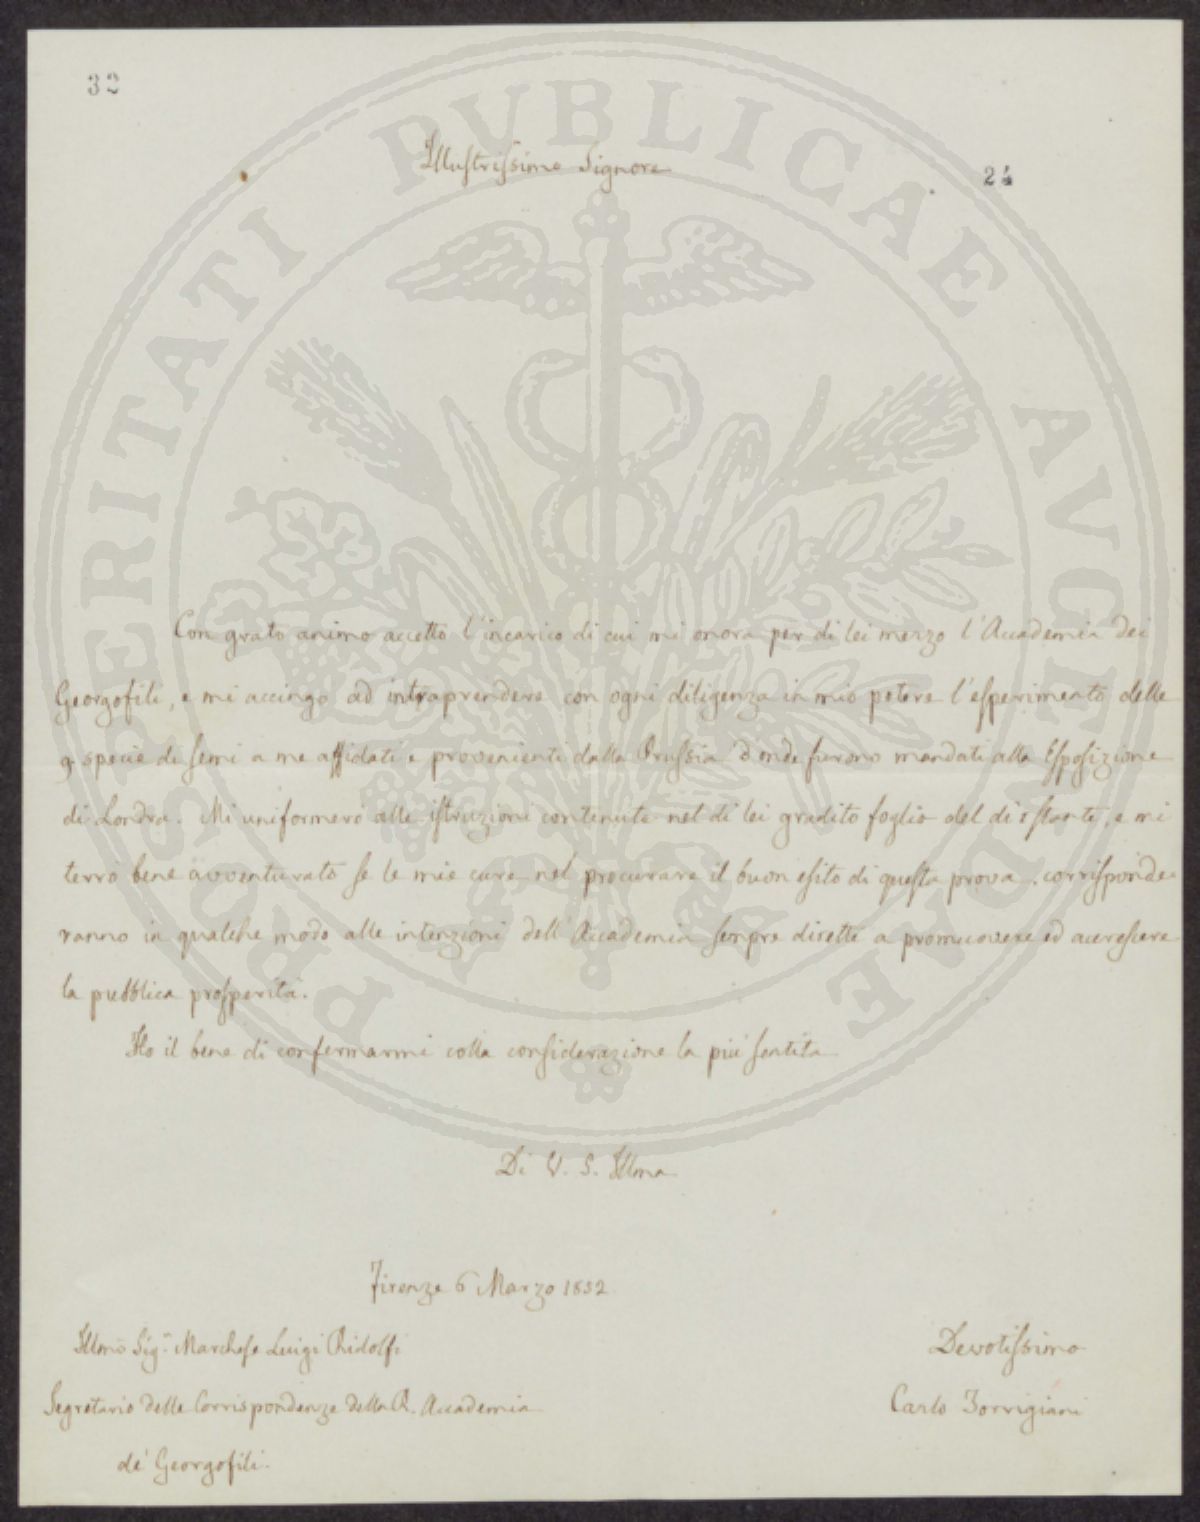 32
Illustrissimo Signore
24
Con grato animo accetto l'incarico di cui mi onora per di lei mezzo l'Accademia dei
Georgofili, e mi accingo ad intraprendere con ogni diligenza in mio potere l'esperimento delle
9 specie di semi a me affidati e provenienti dalla Prussia d'onde furono mandati alla Esposizione
di Londra. Mi uniformerò alle istruzioni contenute nel di lei gradito foglio del dì stante, e mi
terrò bene avventurato se le mie cure nel procurare il buon esito di questa prova corrisponde-
ranno in qualche modo alle intenzioni dell'Accademia sempre dirette a promuovere ed accrescere
la pubblica prosperità.
Ho il bene di confermarmi colla considerazione la più sentita
Di V. S. Illma
Firenze 6 Marzo 1852
Illmo Sigr Marchese Luigi Ridolfi
Devotissimo
Segretario delle Corrispondenze della R. Accademia
Carlo Torrigiani
de' Georgofili.
PROSPERITATI PUBLICAE AUGENDAE